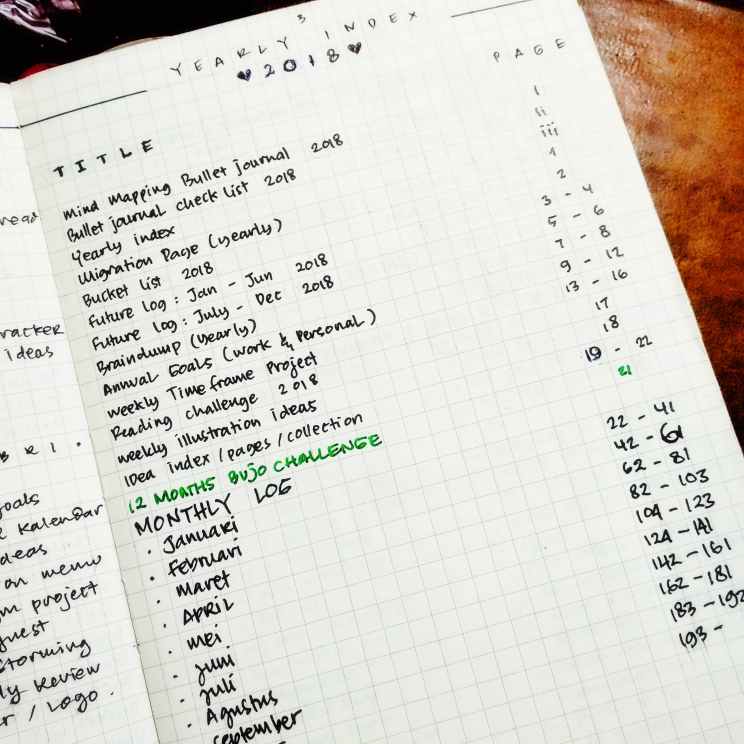 racker
ideas
B R I .
oals
e Kalendar
deas
on memo
m project
quest
storming
ly Review
r / Logo .
YEARLY INDEX
♥ 2018 ♥
TITLE PAGE
Mind Mapping Bullet journal 2018 I
Bullet journal check list 2018 ii
Yearly index iii
Migration Page (yearly) 1
Bucket list 2018 2
Future log : Jan - Jun 2018 3 - 4
Future log : July - Dec 2018 5 - 6
Braindump (yearly) 7 - 8
Annual Goals (work & Personal) 9 - 12
Weekly Timeframe Project 13 - 16
Reading challenge 2018 17
weekly illustration ideas 18
Idea index / pages / collection 19 - 22
12 MONTHS BUJO CHALLENGE 21
MONTHLY LOG
· Januari 22 - 41
· Februari 42 - 61
· Maret 62 - 81
· April 82 - 103
· Mei 104 - 123
· Juni 124 - 141
· Juli 142 - 161
· Agustus 162 - 181
· September 183 - 192
193 -